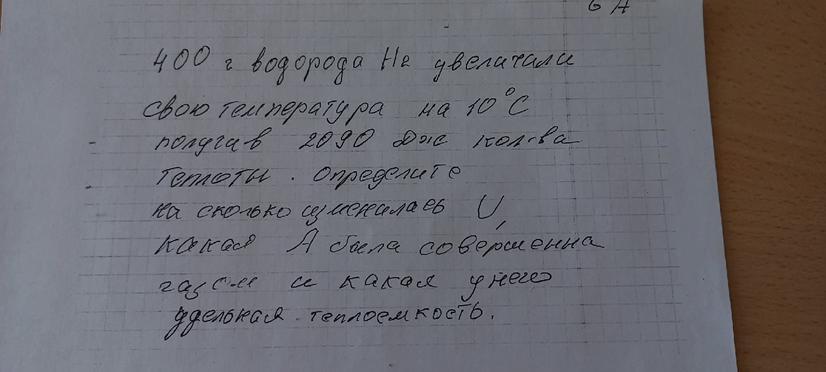 6 А
400 г водорода Не увеличили
свою температура на 10°С
получав 2090 Дж кол-ва
теплоты. определите
на сколько изменилась U,
какая А была совершенна
газом и какая у него
удельная теплоемкость.